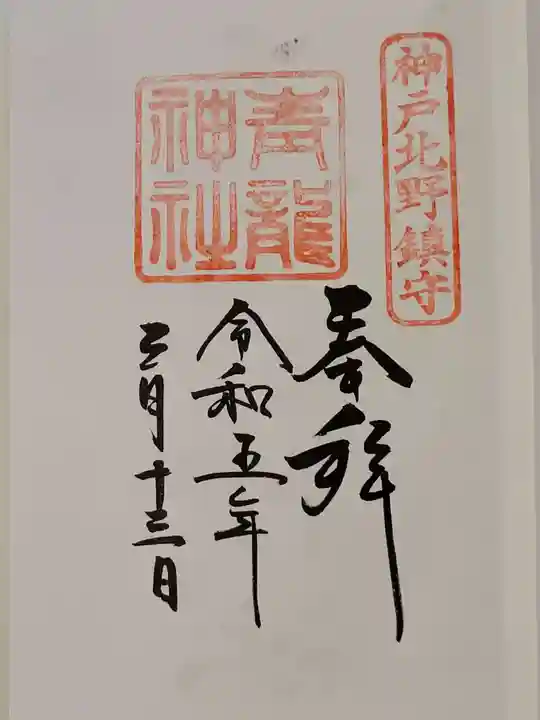 神戸北野鎮守
青龍
神社
奉拜
令和五年
三月十三日